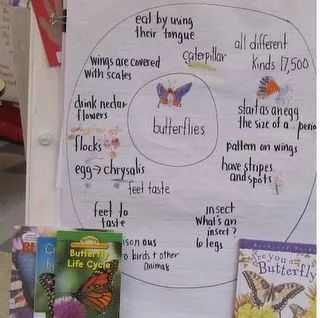 eat by using
their tongue
caterpillar
all different
kinds 17,500
wings are covered
with scales
drink nectar
flowers
butterflies
start as an egg
the size of a
flocks
pattern on wings
egg → chrysalis
have stripes
and spots
feet taste
feet to
taste
insect
What's an
insect?
6 legs
ous
to birds + other
animals
Butterfly
Life Cycle
Are you a
Butterfly